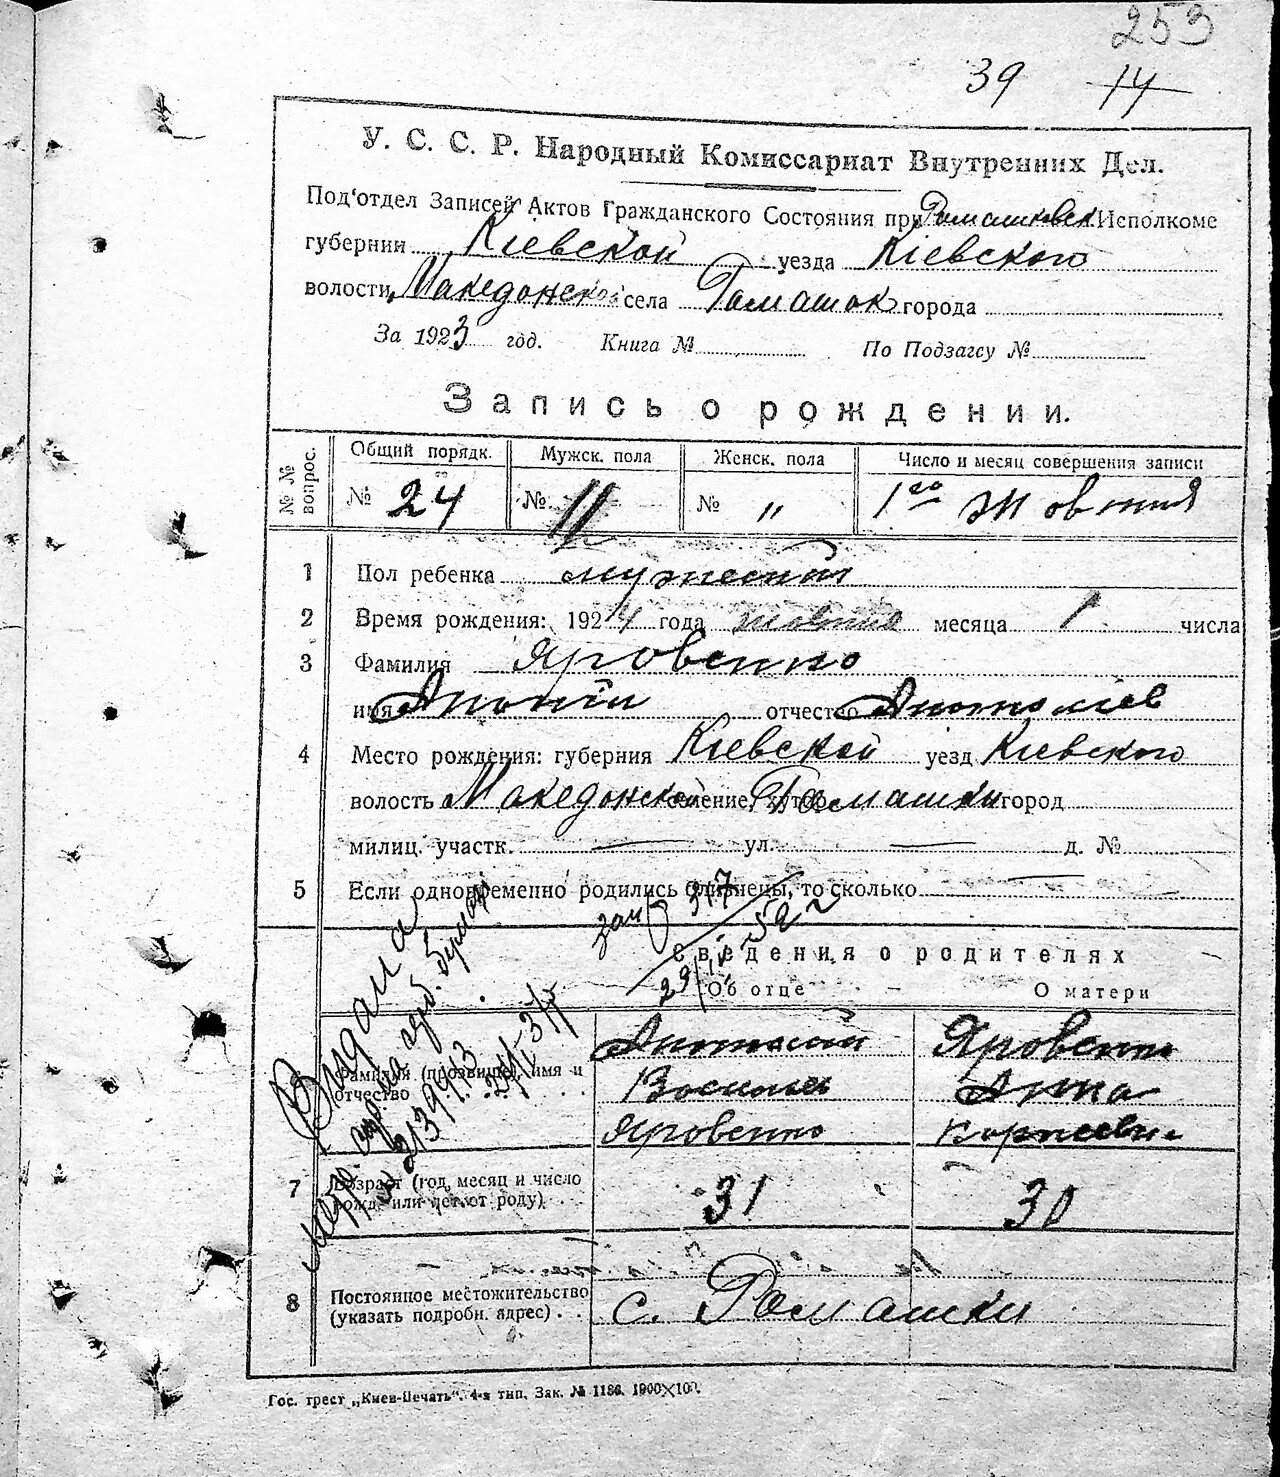 253
39 14
У. С. С. Р. Народный Комиссариат Внутренних Дел.
Под'отдел Записей Актов Гражданского Состояния при Ромашковск. Исполкоме
губернии Кіевской уезда Кіевского
волости Македонской села Ромашок города
За 1923 год. Книга № По Подзагсу №
Запись о рождении.
№ № вопрос. Общий порядк. Мужск. пола Женск. пола Число и месяц совершения записи
№ 24 № 11 № " 1го Жовтня
1 Пол ребенка мужской
2 Время рождения: 1924 года жовтня месяца 1 числа
3 Фамилия Яровенко
имя отчество
4 Место рождения: губерния Кіевской уезд Кіевского
волость Македонской селение, хутор Ромашки город
милиц. участк. — ул. — д. №
5 Если одновременно родились близнецы, то сколько —
Сведения о родителях
Об отце — О матери
Фамилия (прозвище), имя и отчество
Анатолий Яровенко
Анна
Яровенко
7 Возраст (год, месяц и число рожд. или лет от роду) 31 30
8 Постоянное местожительство (указать подробн. адрес) с. Ромашки
Видана
Гос. трест „Киев-Печать". 4-я тип. Зак. № 1186. 1900×100.